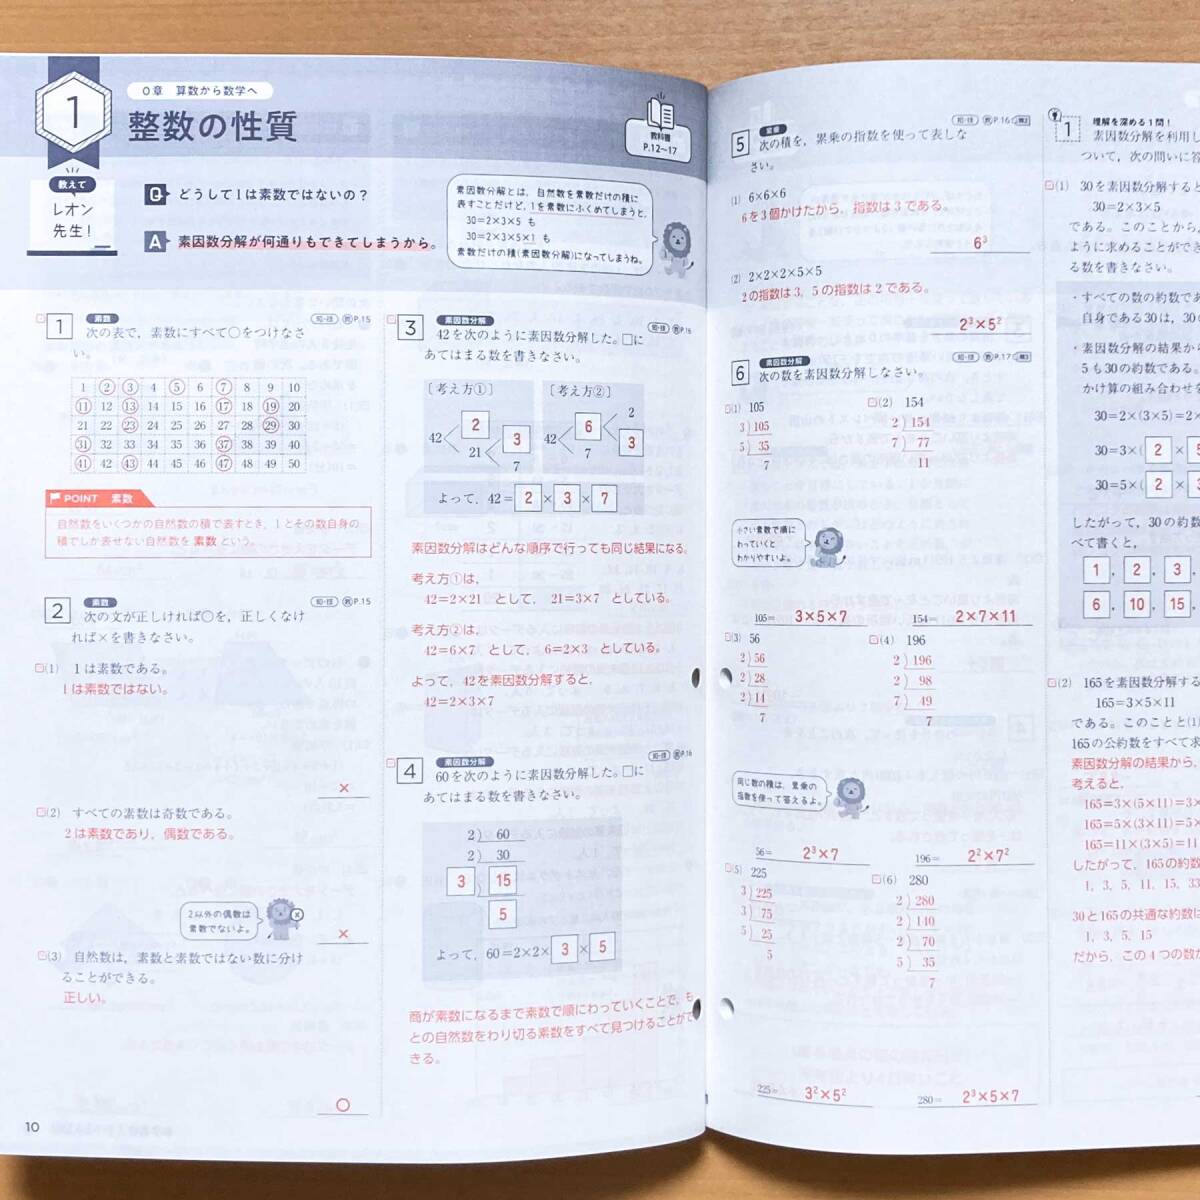 1
0章 算数から数学へ
整数の性質
教科書
P.12〜17
教えて
レオン
先生!
Q どうして1は素数ではないの?
A 素因数分解が何通りもできてしまうから。
素因数分解とは,自然数を素数だけの積に
表すことだけど,1を素数にふくめてしまうと,
30=2×3×5 も
30=2×3×5×1 も
素数だけの積(素因数分解)になってしまうね。
1 素数 知・技 教P.15
次の表で,素数にすべて○をつけなさ
い。
1 2 3 4 5 6 7 8 9 10
11 12 13 14 15 16 17 18 19 20
21 22 23 24 25 26 27 28 29 30
31 32 33 34 35 36 37 38 39 40
41 42 43 44 45 46 47 48 49 50
POINT 素数
自然数をいくつかの自然数の積で表すとき,1とその数自身の
積でしか表せない自然数を 素数 という。
2 素数 知・技 教P.15
次の文が正しければ○を,正しくなけ
れば×を書きなさい。
(1) 1は素数である。
1は素数ではない。
×
(2) すべての素数は奇数である。
2は素数であり,偶数である。
2以外の偶数は
素数でないよ。
×
(3) 自然数は,素数と素数ではない数に分け
ることができる。
正しい。
○
10
3 素因数分解 知・技 教P.16
42を次のように素因数分解した。□に
あてはまる数を書きなさい。
[考え方①] [考え方②]
42 2 21 3 7
42 6 7 2 3
よって,42= 2 × 3 × 7
素因数分解はどんな順序で行っても同じ結果になる。
考え方①は,
42=2×21 として, 21=3×7 としている。
考え方②は,
42=6×7 として, 6=2×3 としている。
よって,42を素因数分解すると,
42=2×3×7
4 素因数分解 知・技 教P.16
60を次のように素因数分解した。□に
あてはまる数を書きなさい。
2) 60
2) 30
3 ) 15
5
よって,60=2×2× 3 × 5
商が素数になるまで素数で順にわっていくことで,も
との自然数をわり切る素数をすべて見つけることがで
きる。
5 累乗 知・技 教P.16
次の積を,累乗の指数を使って表しな
さい。
(1) 6×6×6
6を3個かけたから,指数は3である。
6³
(2) 2×2×2×5×5
2の指数は3,5の指数は2である。
2³×5²
6 素因数分解 知・技 教P.17
次の数を素因数分解しなさい。
(1) 105
3)105
5) 35
7
(2) 154
2)154
7) 77
11
小さい素数で順に
わっていくと
わかりやすいよ。
105= 3×5×7
154= 2×7×11
(3) 56
2)56
2)28
2)14
7
(4) 196
2)196
2) 98
7) 49
7
同じ数の積は,累乗の
指数を使って答えるよ。
56= 2³×7
196= 2²×7²
(5) 225
3)225
3) 75
5) 25
5
(6) 280
2)280
2)140
2) 70
5) 35
7
225= 3²×5²
280= 2³×5×7
1 理解を深める1問!
素因数分解を利用し
ついて,次の問いに答
(1) 30を素因数分解する
30=2×3×5
である。このことから,
ように求めることができ
る数を書きなさい。
・すべての数の約数であ
自身である30は,30の
・素因数分解の結果から
5も30の約数である。
かけ算の組み合わせを
30=2×(3×5)=2×
30=3×( 2 × 5
30=5×( 2 × 3
したがって,30の約数
べて書くと,
1 , 2 , 3 ,
6 , 10 , 15 ,
(2) 165を素因数分解する
165=3×5×11
である。このことと(1)
165の公約数をすべて求
素因数分解の結果から,
考えると,
165=3×(5×11)=3×
165=5×(3×11)=5×
165=11×(3×5)=11
したがって,165の約数
1, 3, 5, 11, 15, 33
30と165の共通な約数は
1, 3, 5, 15
だから,この4つの数が